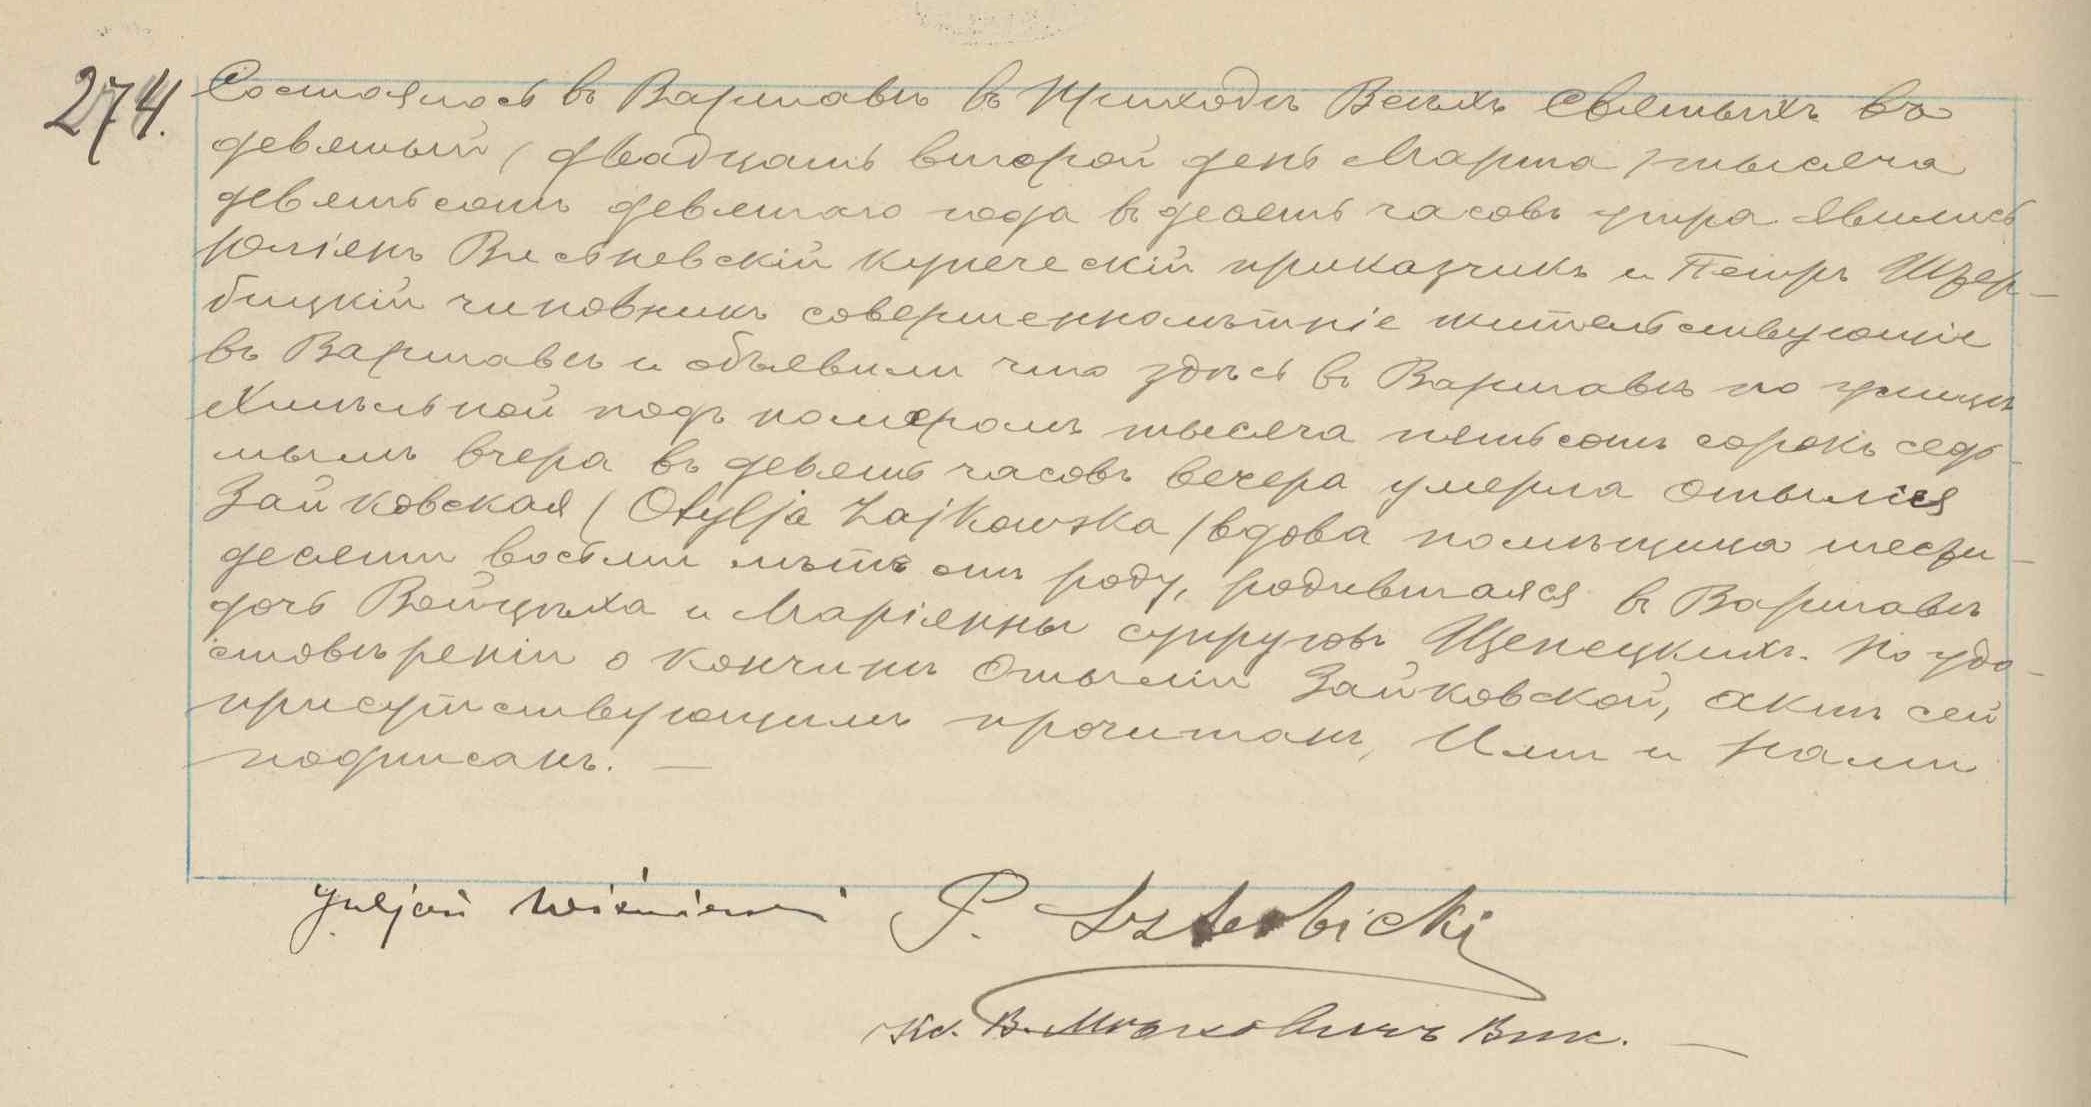 274.
Состоялось въ Варшавѣ въ Приходѣ Всѣхъ Святыхъ въ
девятый / двадцать второй день Марта / тысяча
девятьсотъ девятаго года въ десять часовъ утра. Явились
Юліянъ Висьневскій купеческій приказчикъ и Петръ Штер-
бицкій чиновникъ совершеннолѣтніе жительствующіе
въ Варшавѣ и объявили что здѣсь въ Варшавѣ по улицѣ
Хмѣльной подъ номеромъ тысяча пятьсотъ сорокъ седь-
мымъ вчера въ девять часовъ вечера умерла Отылія
Зайковская / Otylja Zajkowska / вдова помѣщика шести-
десяти восьми лѣтъ отъ роду, родившаяся въ Варшавѣ
дочь Войцѣха и Маріянны супруговъ Щепецкихъ. По удо-
стовѣреніи о кончинѣ Отыліи Зайковской, актъ сей
присутствующимъ прочитанъ, Ими и Нами
подписанъ. —
Juljan Wiśniewski P. Szterbicki
Кс. В. Вик. —